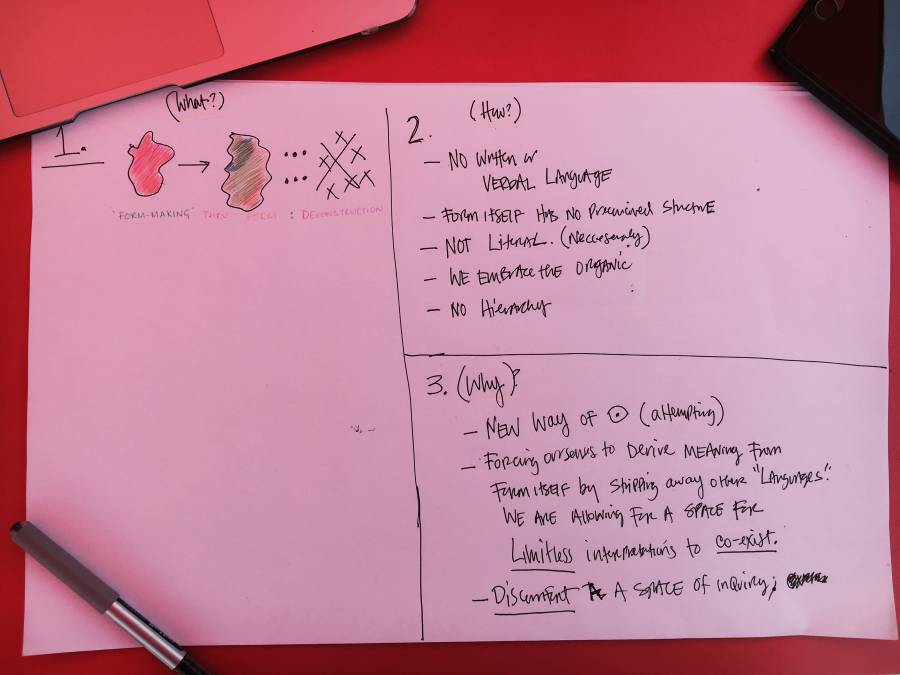 (What?)
1.
"FORM-MAKING" THRU FORM : DECONSTRUCTION
2. (How?)
– NO WRITTEN OR
VERBAL LANGUAGE
– FORM ITSELF HAS NO
– NOT LITERAL. (Neccesarily)
– WE EMBRACE THE ORGANIC
– NO HIERARCHY
3. (Why)?
– NEW WAY OF (attempting)
– FORCING OURSELVES TO DERIVE MEANING FROM
FORM ITSELF BY STRIPPING AWAY OTHER "LANGUAGES".
WE ARE ALLOWING FOR A SPACE FOR
Limitless interpretations to co-exist.
– DISCOMFORT A SPACE OF INQUIRY;